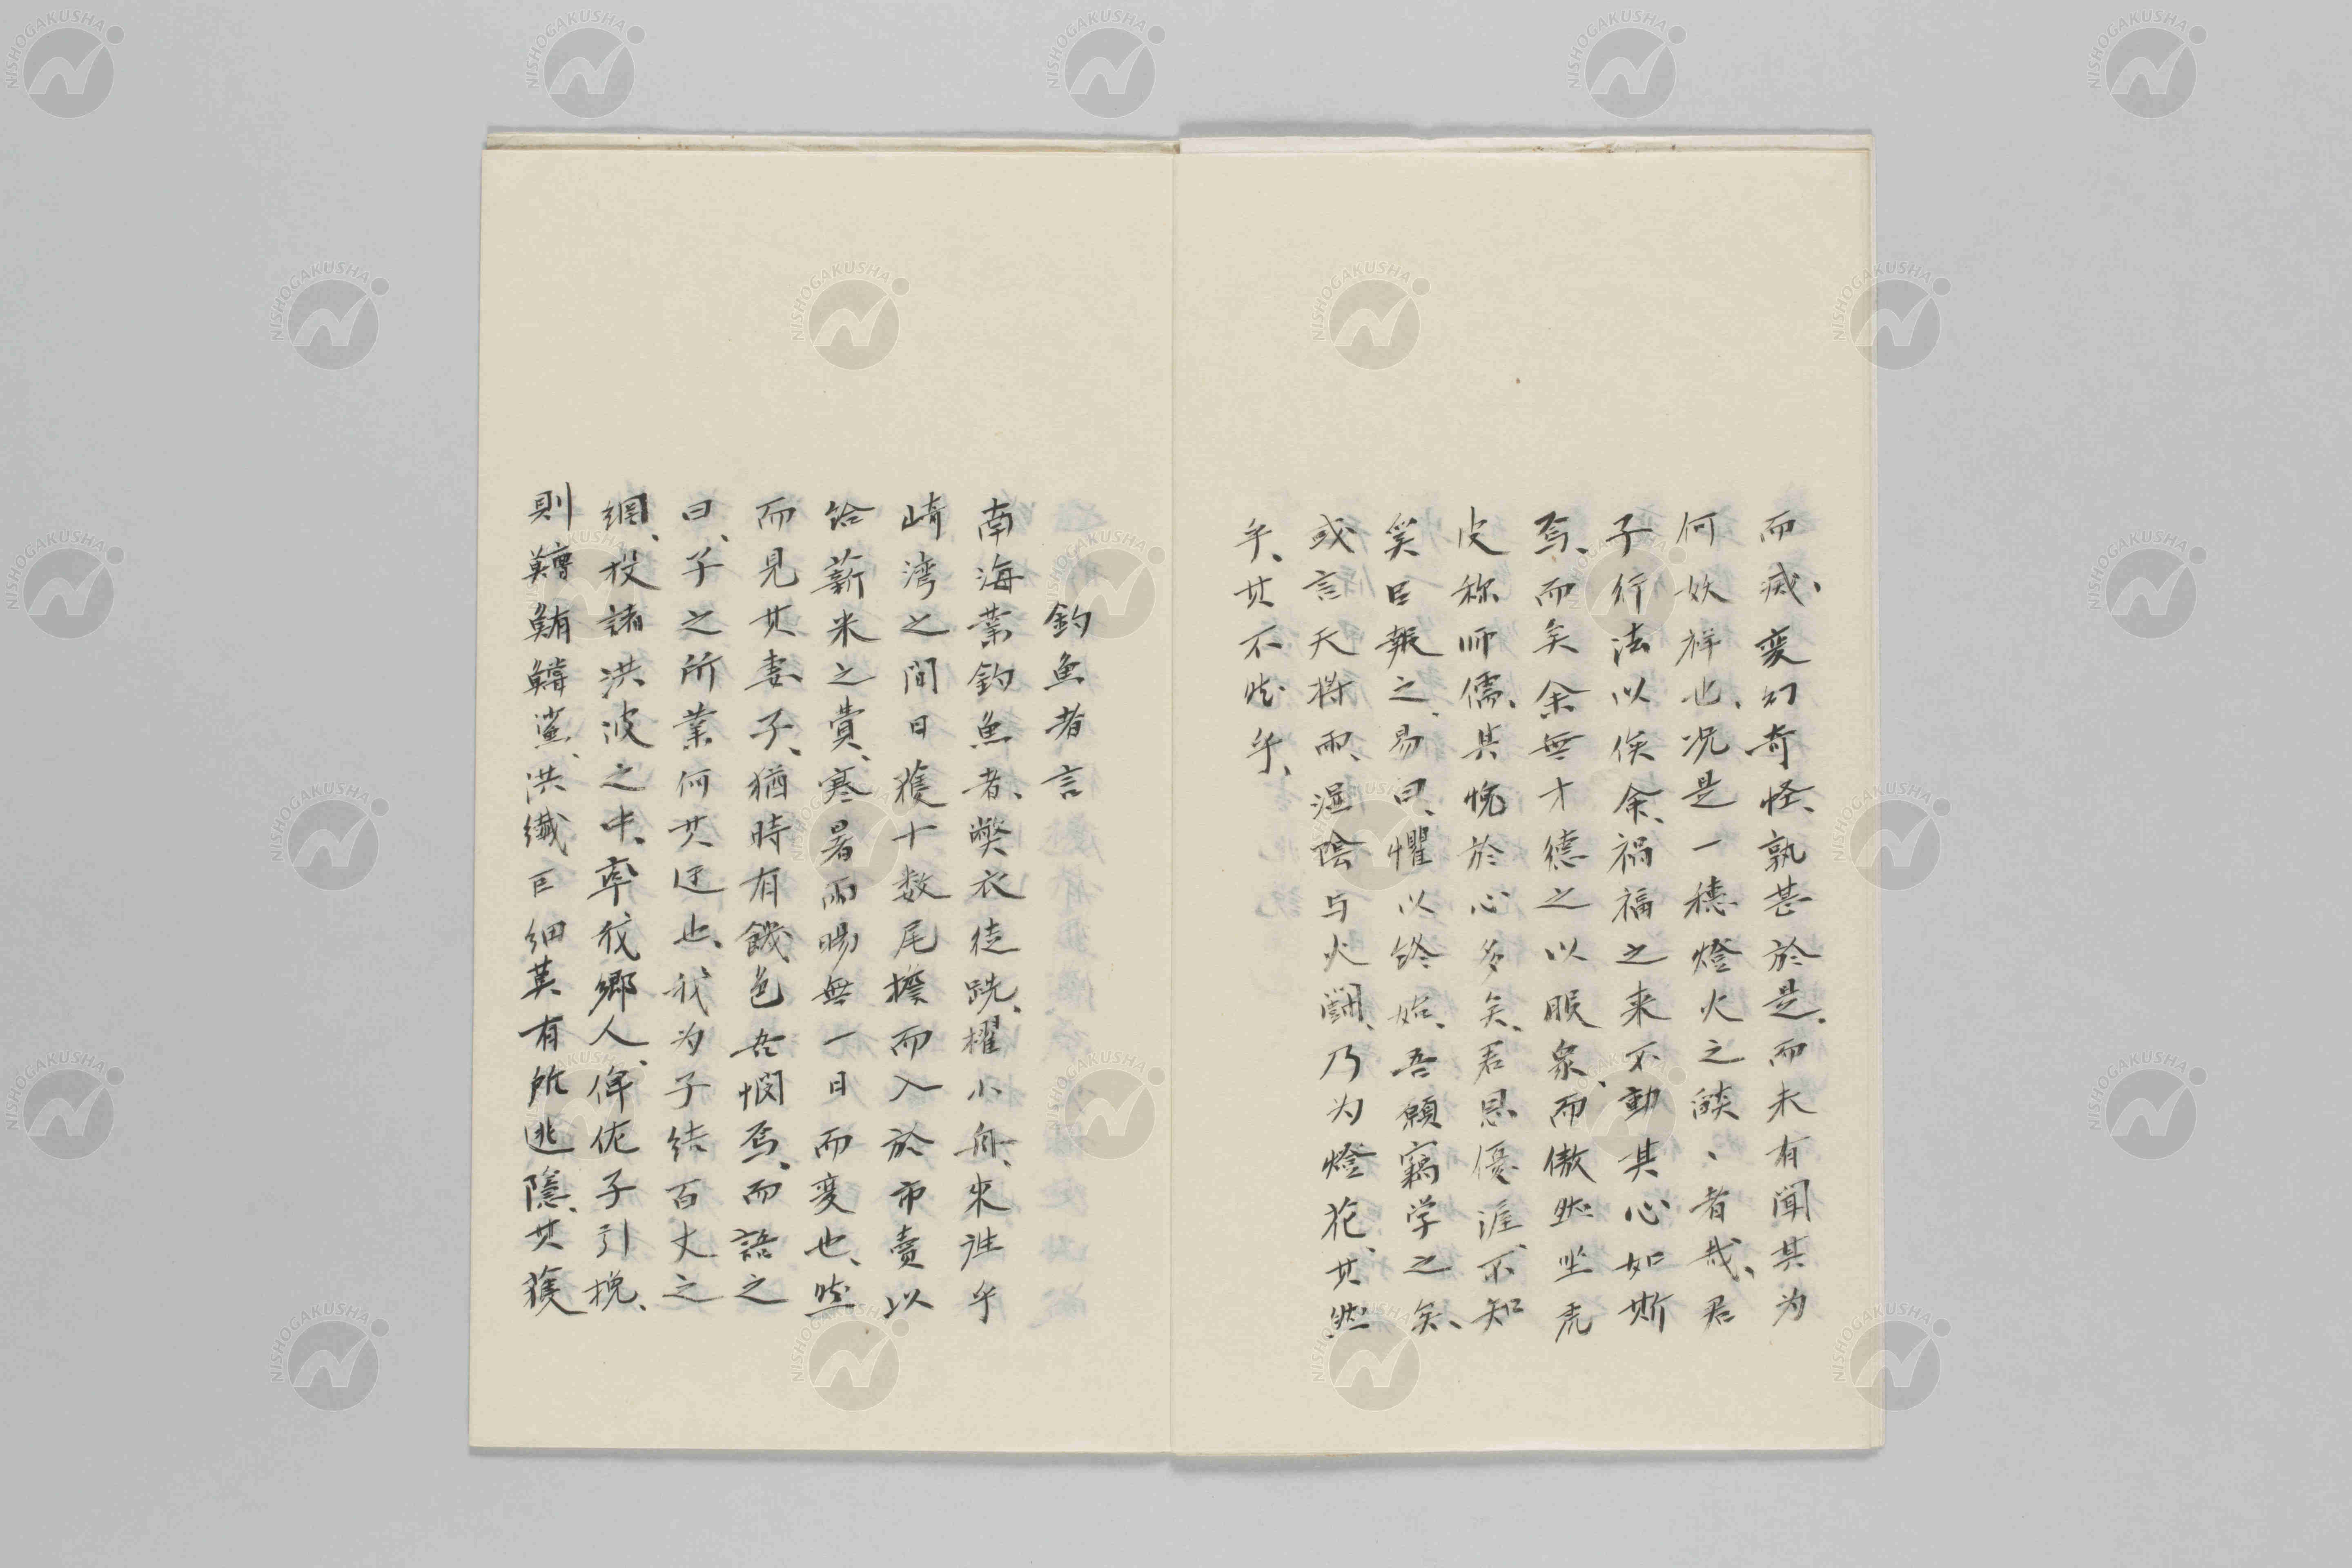 而滅、変幻奇怪、孰甚於是、而未有聞其为
何妖祥也、況是一穂燈火之燄、者哉、君
子行法以俟余、禍福之来不動其心如斯
焉、而矣余無才徳之以服衆、而傲然坐虎
皮称师儒、其愧於心多矣、君恩優渥、不知
奚㠯報之、易曰、懼以終始、吾願竊学之矣、
或言天将雨、湿陰与火闘、乃为燈花、其然
乎、其不然乎、
釣魚者言
南海業釣魚者、弊衣徒跣、櫂小舟、来往乎
崎湾之間日獲十数尾擔而入於市賣以
給薪米之費、寒暑雨暘無一日而変也、然
而見其妻子、猶時有饑色吾憫焉、而語之
曰、子之所業何其迂也、我为子結百丈之
網、投諸洪波之中、率我郷人、俾佐子引挽、
則鱄鮪鱘鯊、洪纖巨細莫有所逃隠、其獲